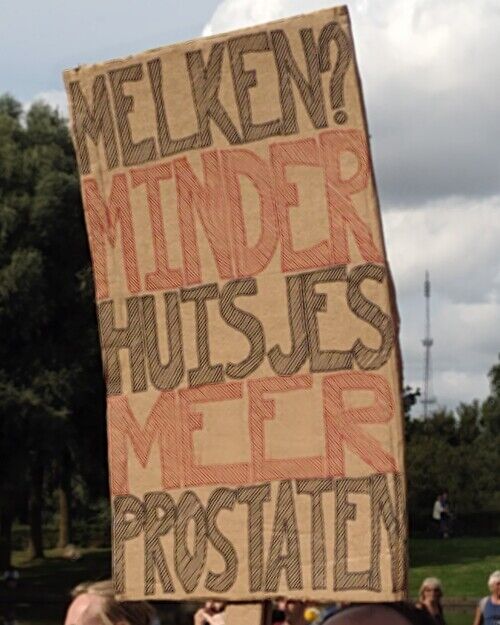 MELKEN?
MINDER
HUISJES
MEER
PROSTATEN